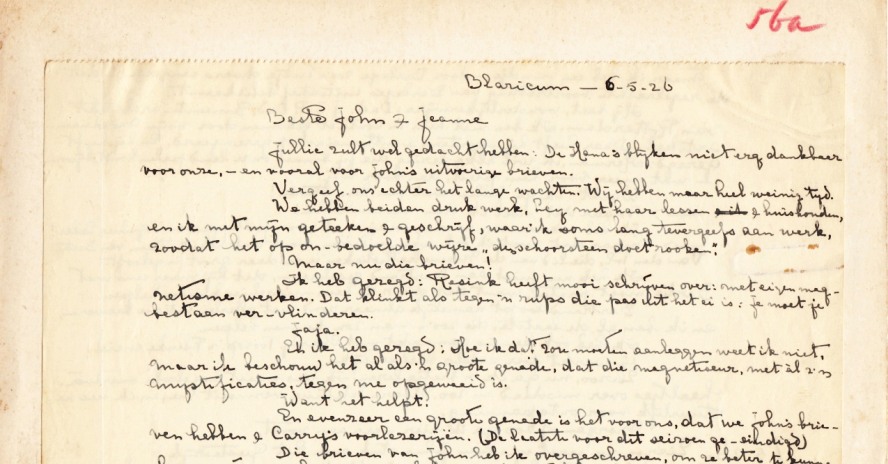 56a
Blaricum — 6-5-26
Beste John & Jeanne
Jullie zult wel gedacht hebben: De Hana's blijken niet erg dankbaar
voor onze, – en vooral voor John's uitvoerige brieven.
Vergeef ons echter het lange wachten. Wij hebben maar heel weinig tyd.
We hebben beiden druk werk, Zey met haar lessen & huishouden,
en ik met mijn geteeken & geschrijf, waar ik soms lang tevergeefs aan werk,
zoodat het op on-bedoelde wijze „de schoorsteen doet rooken".
Maar nu die brieven!
Ik heb gezegd: Resink heeft mooi schrijven over: met eigen mag-
netisme werken. Dat klinkt als tegen 'n rups die pas uit het ei is: je moet je
bestaan ver-vlinderen.
Jaja.
En ik heb gezegd: Hoe ik dat zou moeten aanleggen weet ik niet,
maar ik beschouw het al als 'n groote genade, dat die magnetiseur, met àl z'n
mystificaties, tegen me opgeweeid is.
Want het helpt.
En evenzeer een groote genade is het voor ons, dat we John's brie-
ven hebben & Carry's voorlezerijen. (De laatste voor dit seizoen ge-eindigd)
Die brieven van John heb ik overgeschreven, om ze beter te kunn-